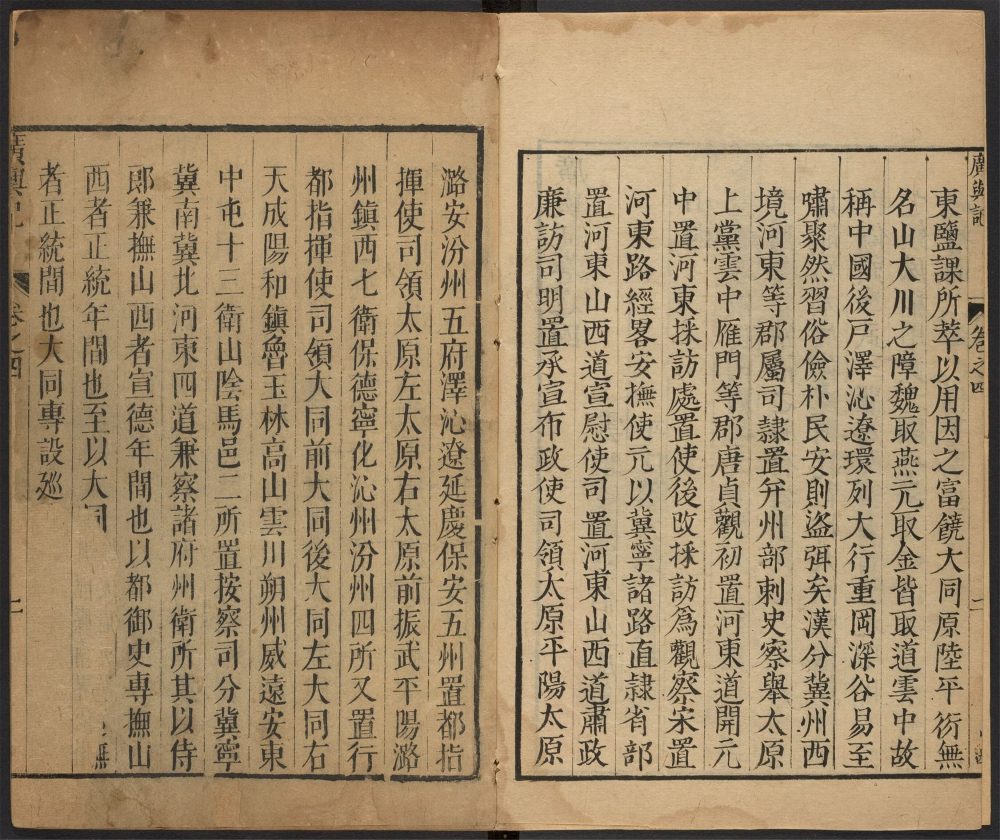 廣輿記
卷之四
二
東鹽課所萃以用因之富饒大同原陸平衍無
名山大川之障魏取燕元取金皆取道雲中故
稱中國後戸澤沁遼環列大行重岡深谷易至
嘯聚然習俗儉朴民安則盜弭矣漢分冀州西
境河東等郡屬司隸置并州部刺史察舉太原
上黨雲中雁門等郡唐貞觀初置河東道開元
中置河東採訪處置使後改採訪爲觀察宋置
河東路經畧安撫使元以冀寧諸路直隸省部
置河東山西道宣慰使司置河東山西道肅政
廉訪司明置承宣布政使司領太原平陽太原
潞安汾州五府澤沁遼延慶保安五州置都指
揮使司領太原左太原右太原前振武平陽潞
州鎮西七衛保德寧化沁州汾州四所又置行
都指揮使司領大同前大同後大同左大同右
天成陽和鎮魯玉林高山雲川朔州威遠安東
中屯十三衛山陰馬邑二所置按察司分冀寧
冀南冀北河東四道兼察諸府州衛所其以侍
郎兼撫山西者宣德年間也以都御史專撫山
西者正統年間也至以大同 撫
者正統間也大同專設廵
廣輿記
卷之四